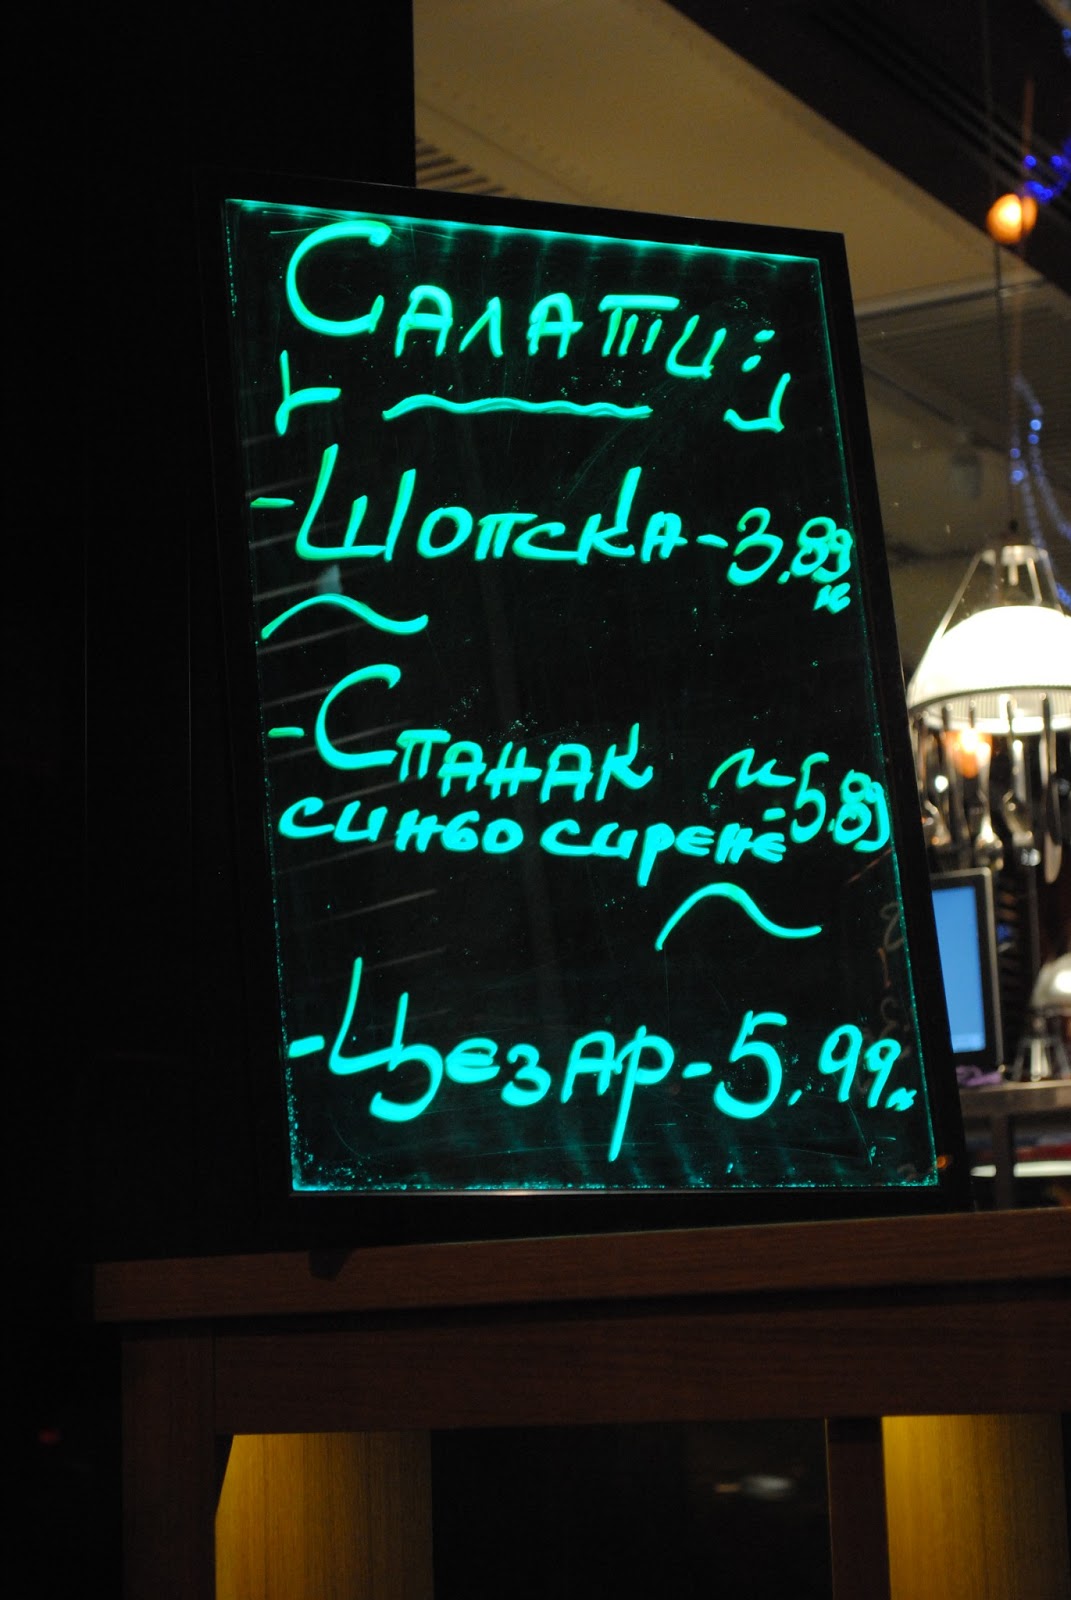 Салати:
-Шопска-3.89
лв
-Спанак и
синьо сирене-5.89
-Цезар-5.99лв